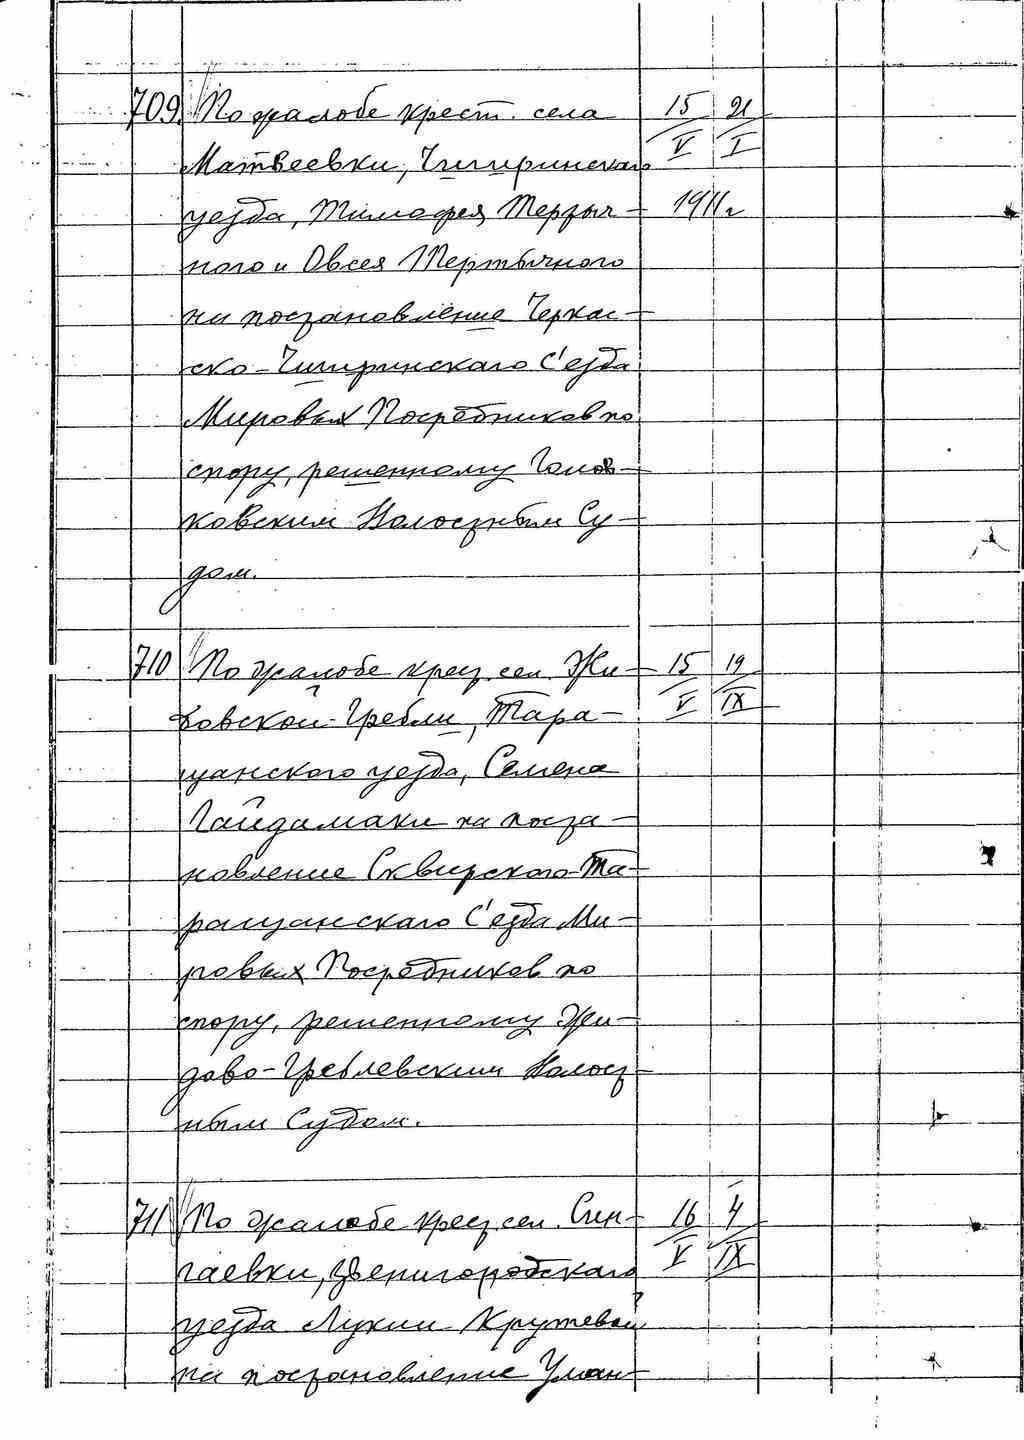 709. По жалобе крест. села 15 21
Матвеевки, Чигиринскаго V I
уезда, Тимофея Терт‍ыч- 1911 г
ного и Овсея Тертычного
на постановление Черкас-
ско-Чигиринскаго С'езда
Мировых Посредников по
спору, решенному Голов-
ковским Волостным Су-
дом.
710 По жалобе крест. сел. Жи- 15 19
довской-Гребли, Тара- V IX
щанского уезда, Семена
Гайдамаки на поста-
новление Сквирского-Та-
ращанскаго С'езда Ми-
ровых Посредников по
спору, решенному Жи-
дово-Греблевским Волост-
ным Судом.
711 По жалобе крест. сел. 16 4
Звенигородскаго V IX
уезда Лукии Крутевой
на постановление Уман-